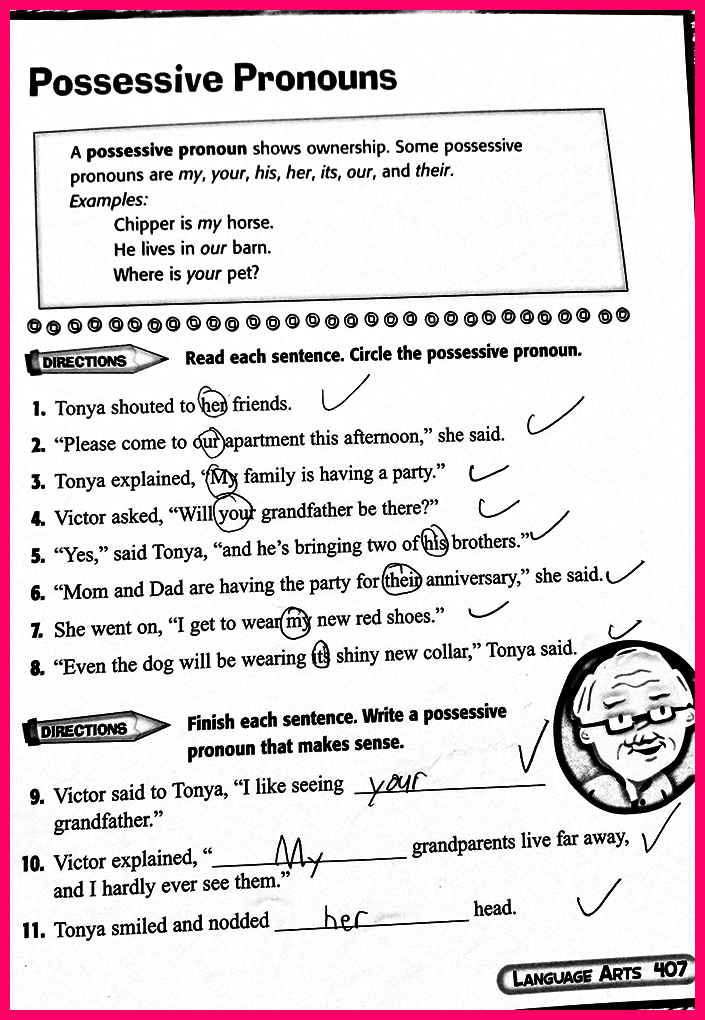 Possessive Pronouns
A possessive pronoun shows ownership. Some possessive
pronouns are my, your, his, her, its, our, and their.
Examples:
Chipper is my horse.
He lives in our barn.
Where is your pet?
DIRECTIONS Read each sentence. Circle the possessive pronoun.
1. Tonya shouted to her friends.
2. “Please come to our apartment this afternoon,” she said.
3. Tonya explained, “My family is having a party.”
4. Victor asked, “Will your grandfather be there?”
5. “Yes,” said Tonya, “and he’s bringing two of his brothers.”
6. “Mom and Dad are having the party for their anniversary,” she said.
7. She went on, “I get to wear my new red shoes.”
8. “Even the dog will be wearing its shiny new collar,” Tonya said.
DIRECTIONS Finish each sentence. Write a possessive
pronoun that makes sense.
9. Victor said to Tonya, “I like seeing your
grandfather.”
10. Victor explained, “My grandparents live far away,
and I hardly ever see them.”
11. Tonya smiled and nodded her head.
LANGUAGE ARTS 407